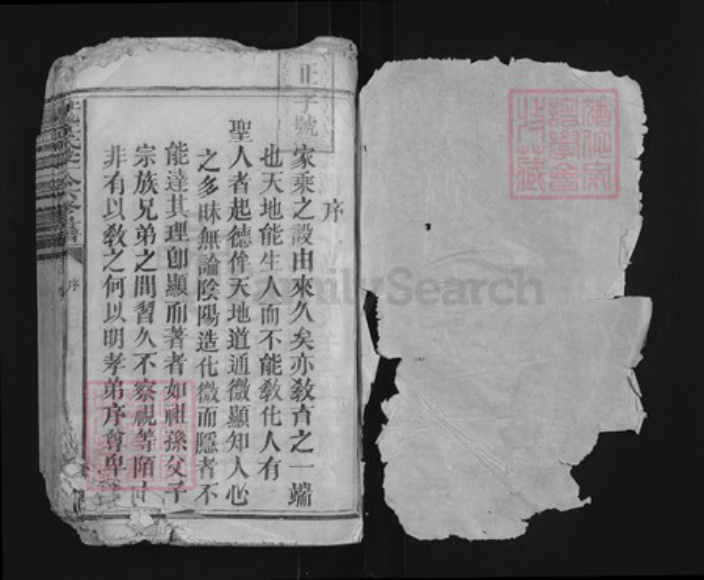 正字號
序
家乘之設由來久矣亦敎育之一端
也天地能生人而不能敎化人有
聖人者起德侔天地道通微顯知人心
之多昧無論陰陽造化微而隱者不
能達其理卽顯而著者如祖孫父子
宗族兄弟之間習久不察視等陌
非有以敎之何以明孝弟序尊卑
譜
序
FamilySearch